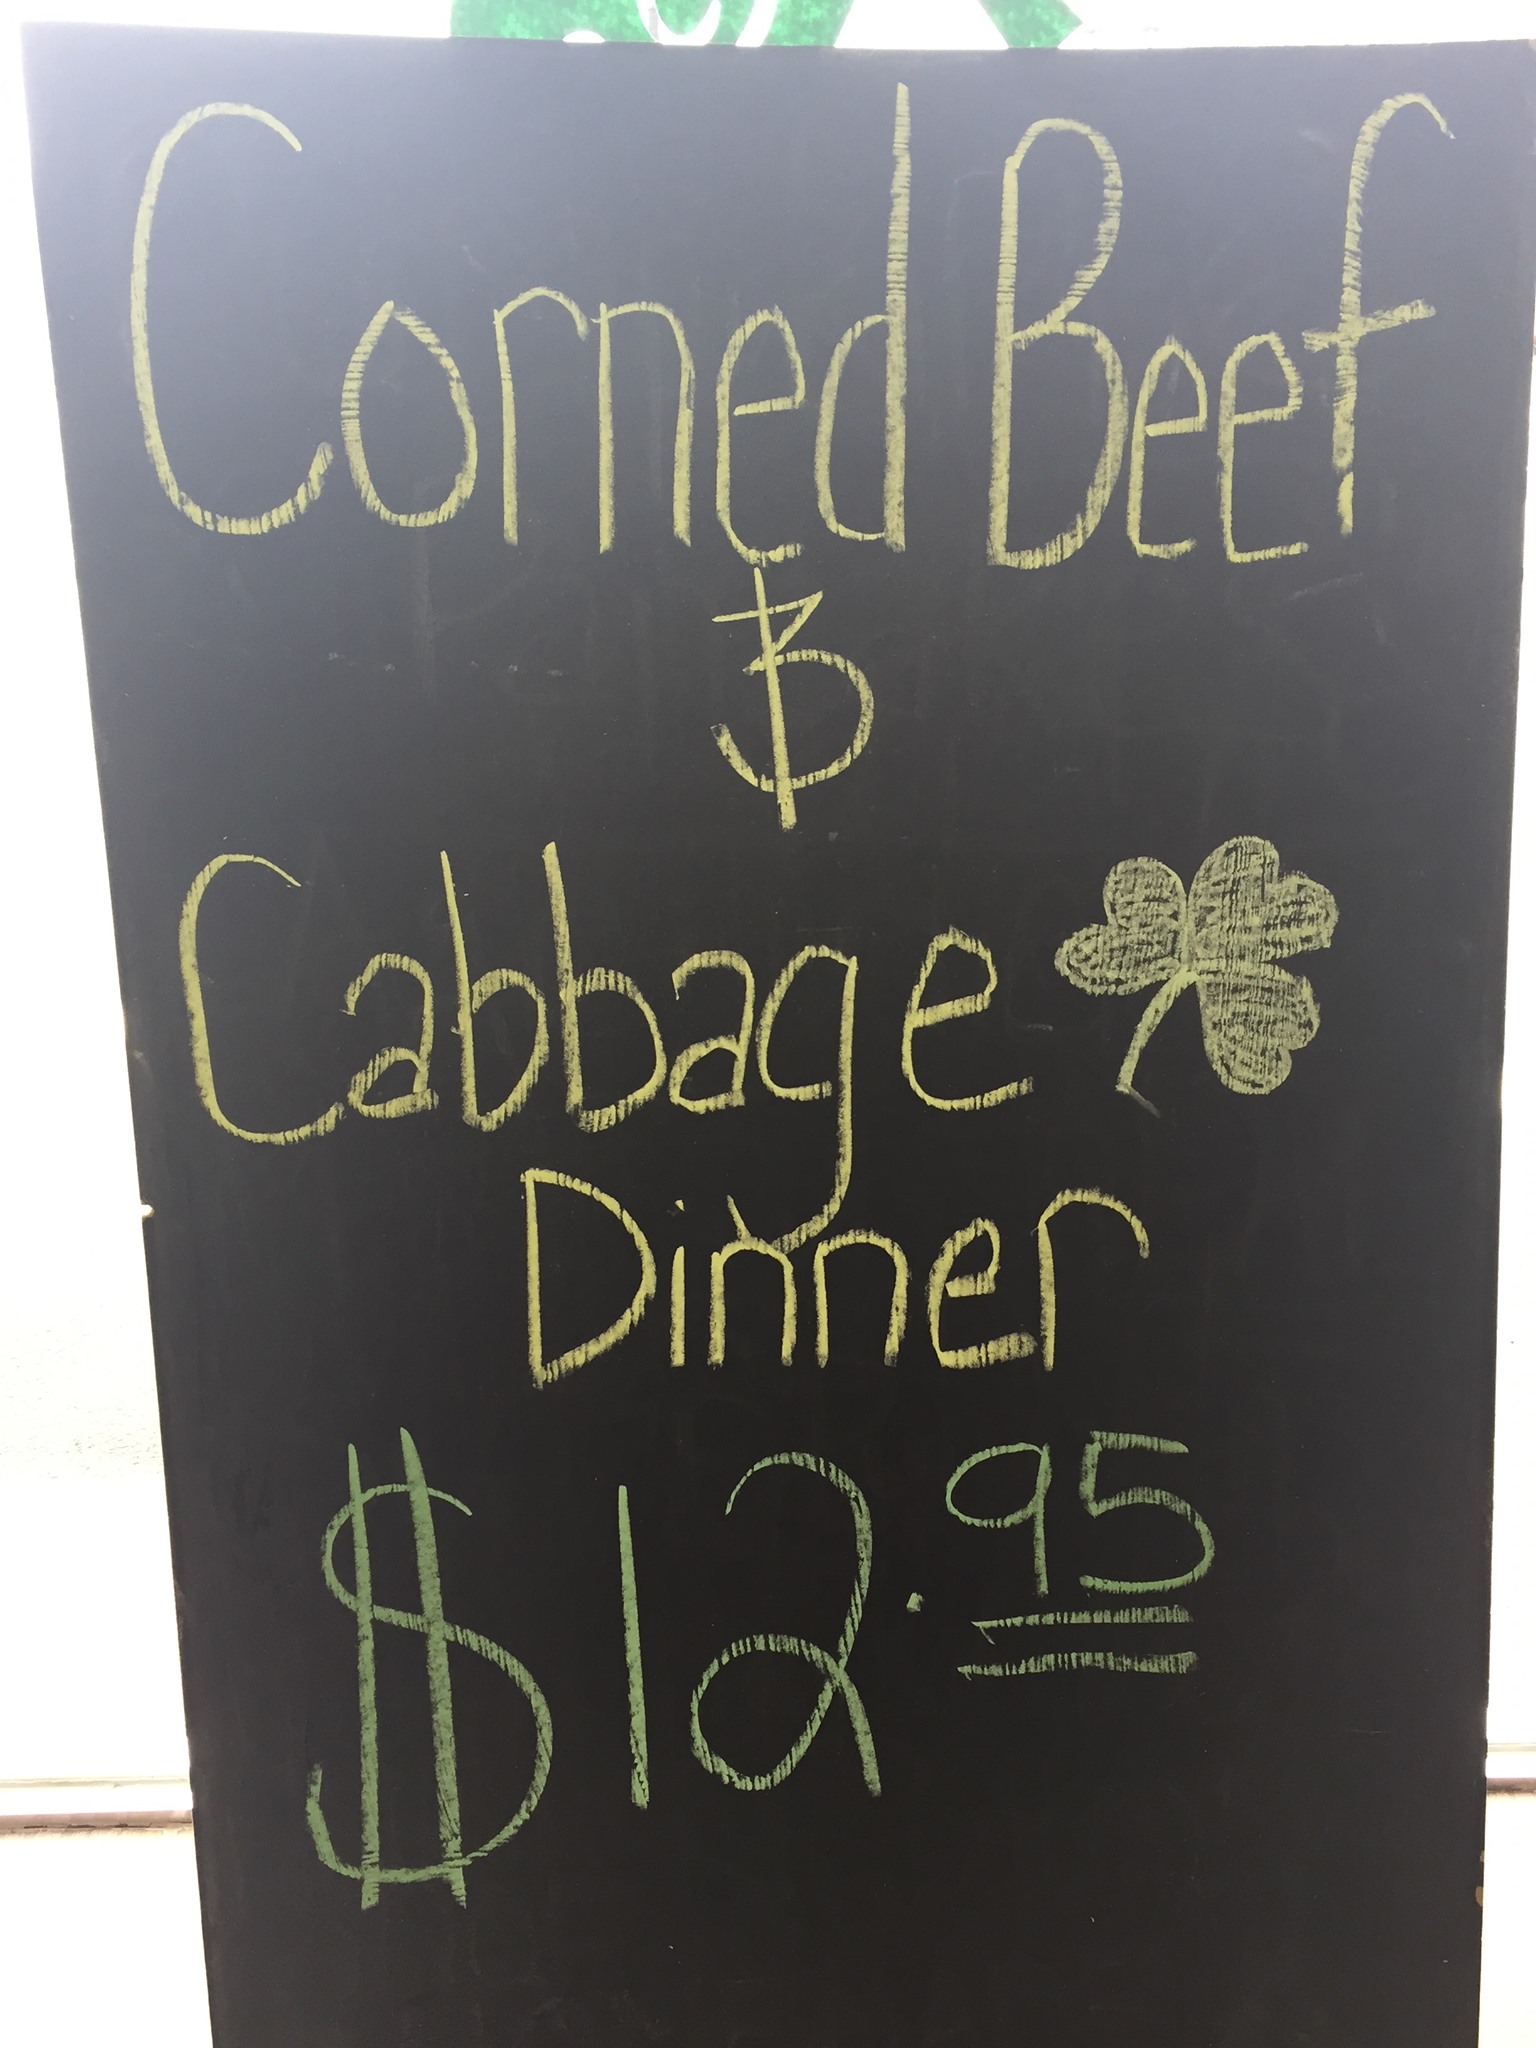 Corned Beef
&
Cabbage
Dinner
$12.95